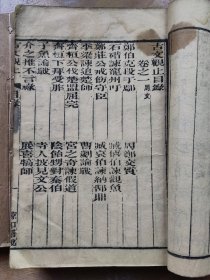 古文觀止目錄
卷之一 周文
鄭伯克段于鄢 周鄭交質
石碏諫寵州吁 臧僖伯諫觀魚
鄭莊公戒飭守臣 臧哀伯諫納郜鼎
季梁諫追楚師 曹劌論戰
齊桓公伐楚盟屈完 宮之奇諫假道
齊桓下拜受胙 陰飴甥對秦伯
子魚論戰 寺人披見文公
介之推不言祿 展喜犒師